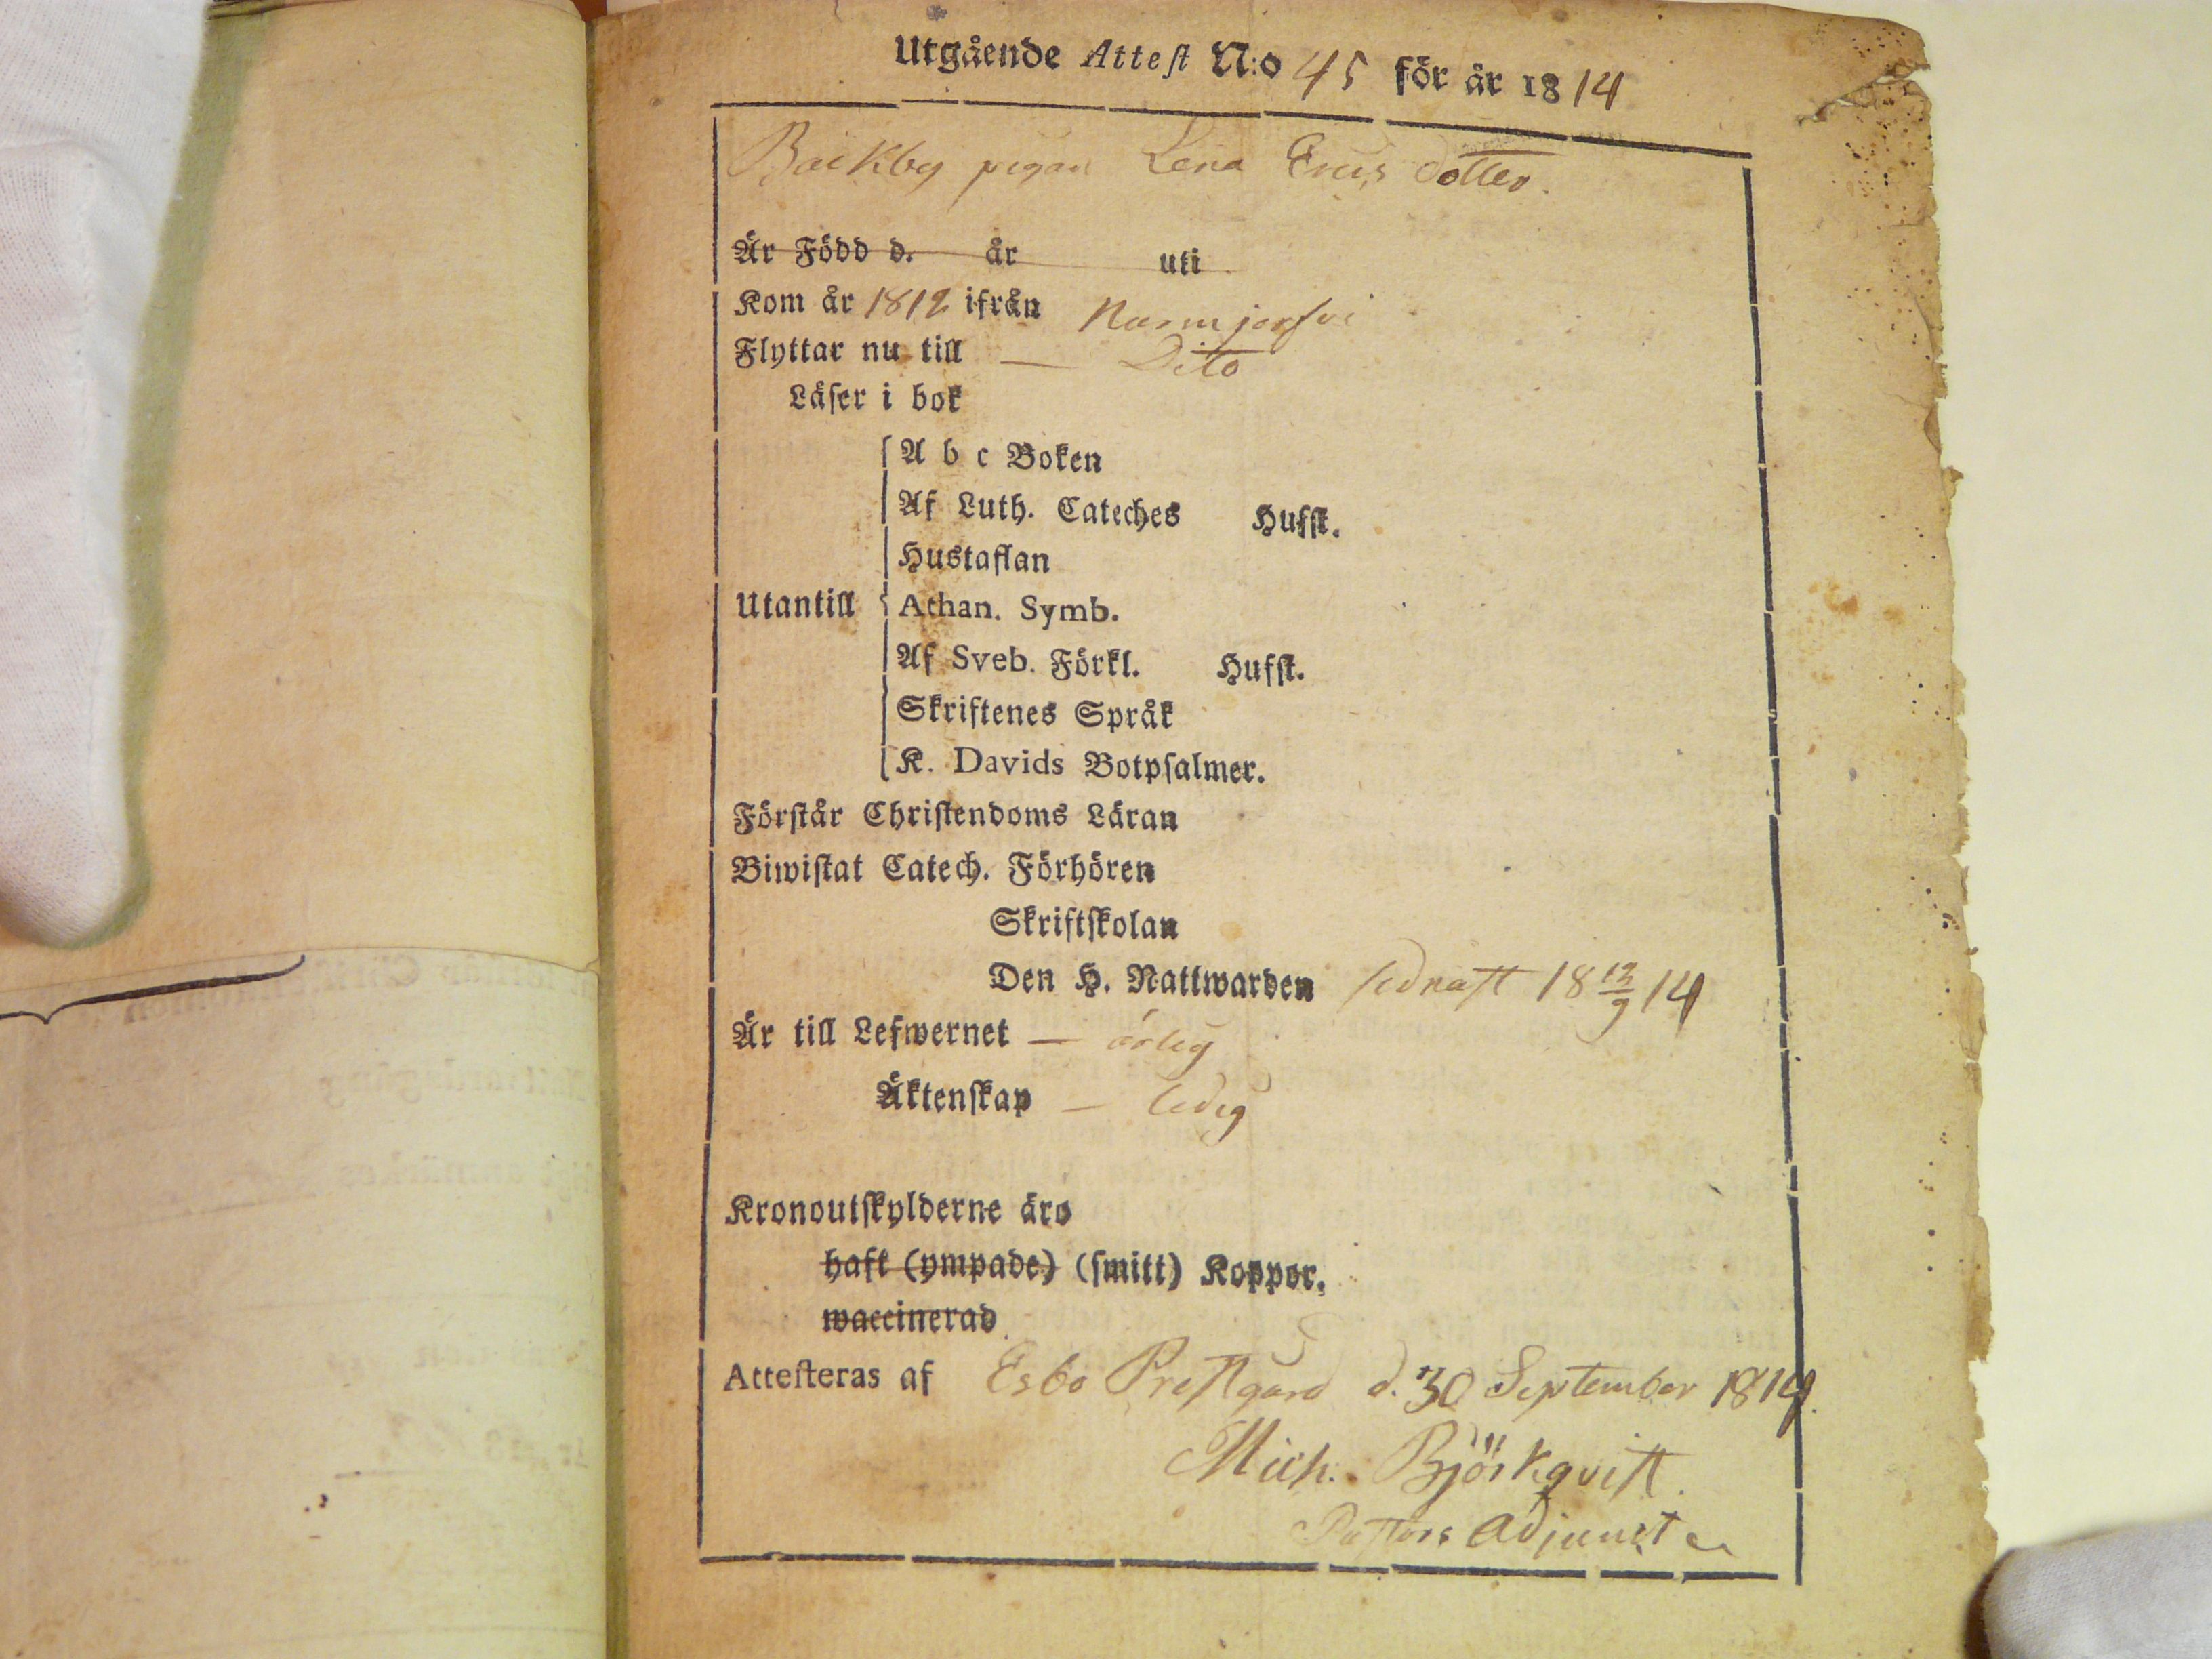 Utgående Attest N:o 45 för år 1814
Backby pigan Lena Ericsdotter.
Är Född d. år uti
Kom år 1812 ifrån Nurmijerfvi
Flyttar nu till — Dito
Läser i bok
A b c Boken
Af Luth. Cateches Hufst.
Hustaflan
Utantill Athan. Symb.
Af Sveb. Förkl. Hufst.
Skriftenes Språk
K. Davids Botpsalmer.
Förstår Christendoms Läran
Biwistat Catech. Förhören
Skriftskolan
Den H. Nattwarden sednast 18 12/9 14
Är till Lefwernet — ärlig
Äktenskap — ledig
Kronoutskylderne äro
haft (ympade) (smitt) Koppor.
waccinerad
Attesteras af Esbo Prestgård d. 30 September 1814.
Mich. Björkqvist.
Pastors Adjunct